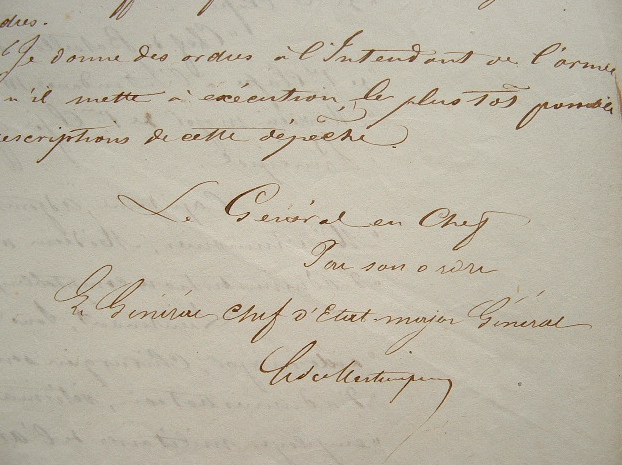 dres.
Je donne des ordres à l'Intendant de l'armée
qu'il mette à exécution, le plus tôt possible
escriptions de cette dépêche.
Le Général en Chef
Par son ordre
Le Général Chef d'Etat-major Général